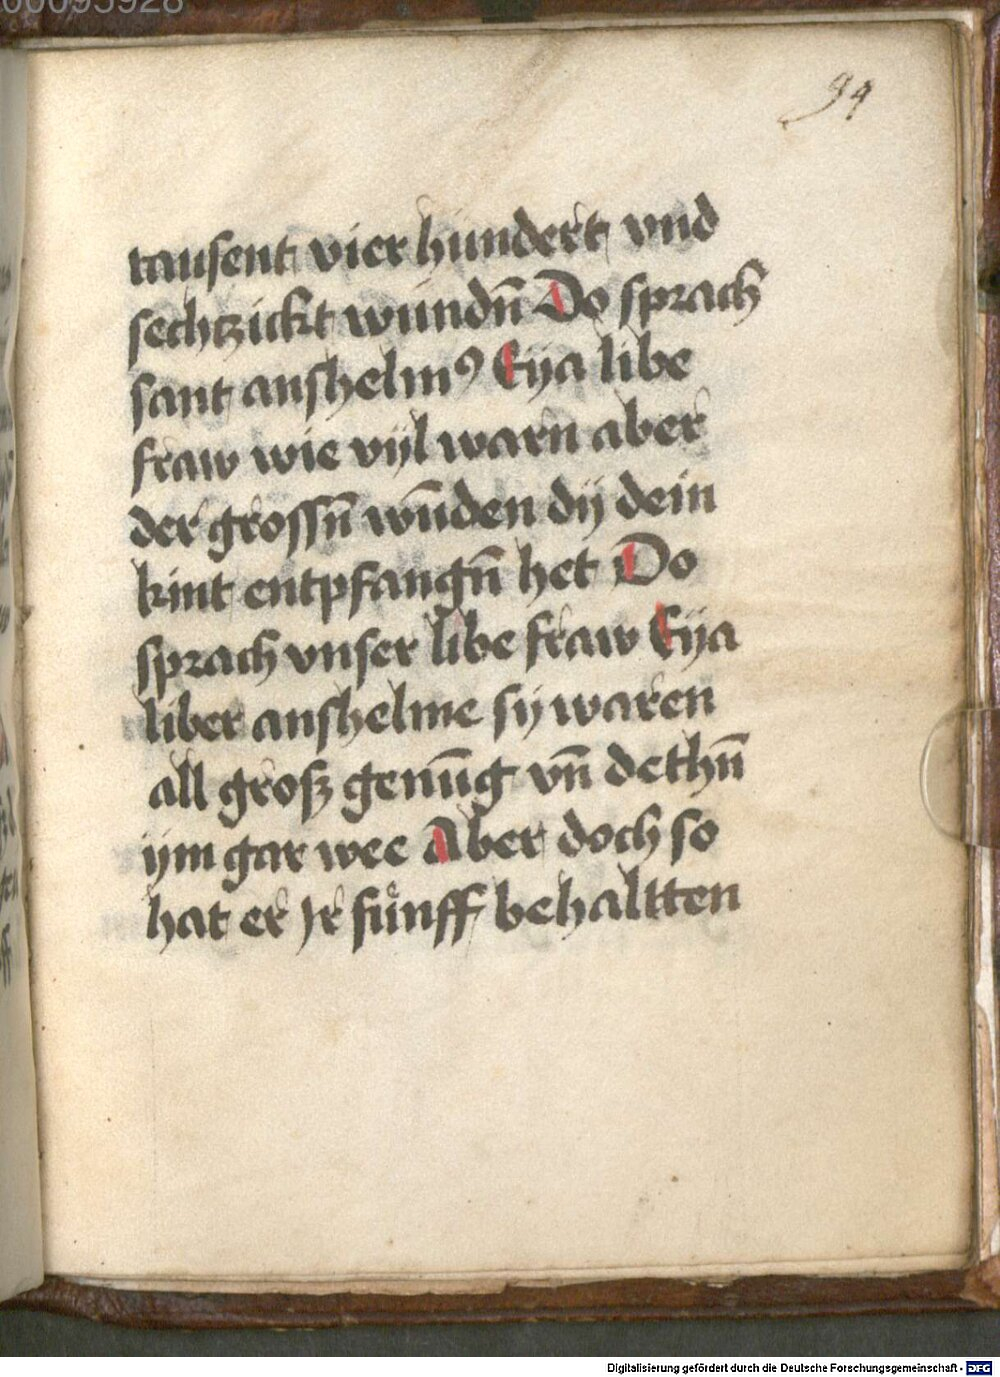 00095928
94
tausent vier hundert vnd
sechtzickt wundn̄ Do sprach
sant anshelmꝯ Eÿa libe
fraw wie vÿl warn aber
der grossn̄ wūden dÿ dein
kint entpfangn̄ het Do
sprach vnser libe fraw Eÿa
liber anshelme sÿ waren
all grosz genūg vn̄ dethn̄
ÿm gar wee Aber doch so
hat er Jr fuͤnff behaltten
Digitalisierung gefördert durch die Deutsche Forschungsgemeinschaft - DFG